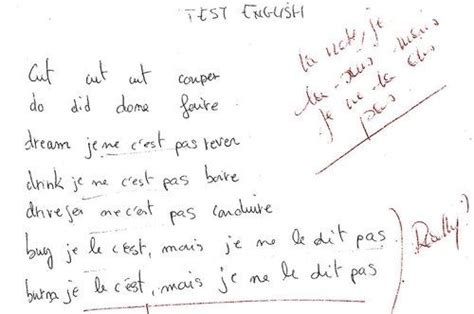 TEST ENGLISH
la note, je
la sais mais
je ne la dis
pas.
Cut cut cut couper
do did done faire
dream je ne c'est pas rever
drink je ne c'est pas boire
ne c'est pas conduire
buy je le c'est, mais je ne le dit pas
burn je le c'est, mais je ne le dit pas
Really?